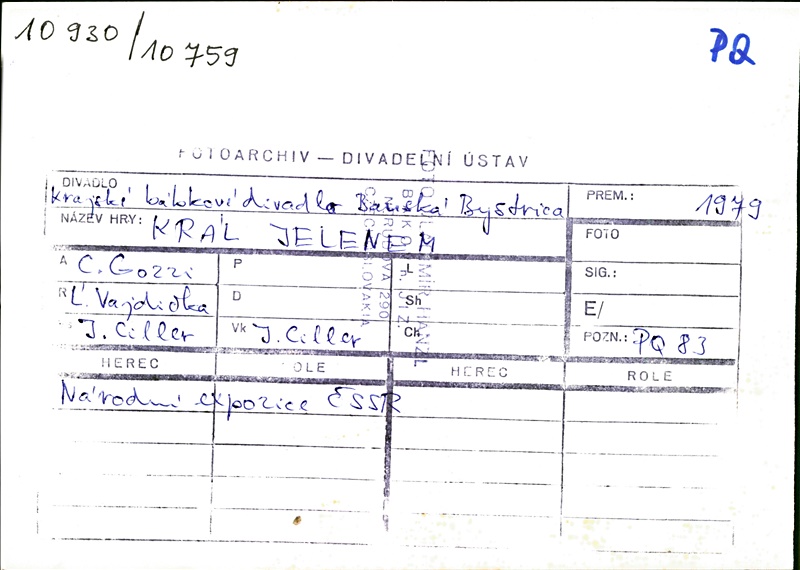 10 930/10 759
PQ
FOTOARCHIV — DIVADELNÍ ÚSTAV
DIVADLO
Krajské bábkové divadlo Banská Bystrica
PREM.: 1979
NÁZEV HRY: KRÁL JELENEM
FOTO
A C. Gozzi
P
L
SIG.:
R Ľ. Vajdička
D
Sh
E/
J. Ciller
Vk J. Ciller
Ch
POZN.: PQ 83
HEREC
ROLE
HEREC
ROLE
Národní expozice ČSSR
FOTO
HANZL
290